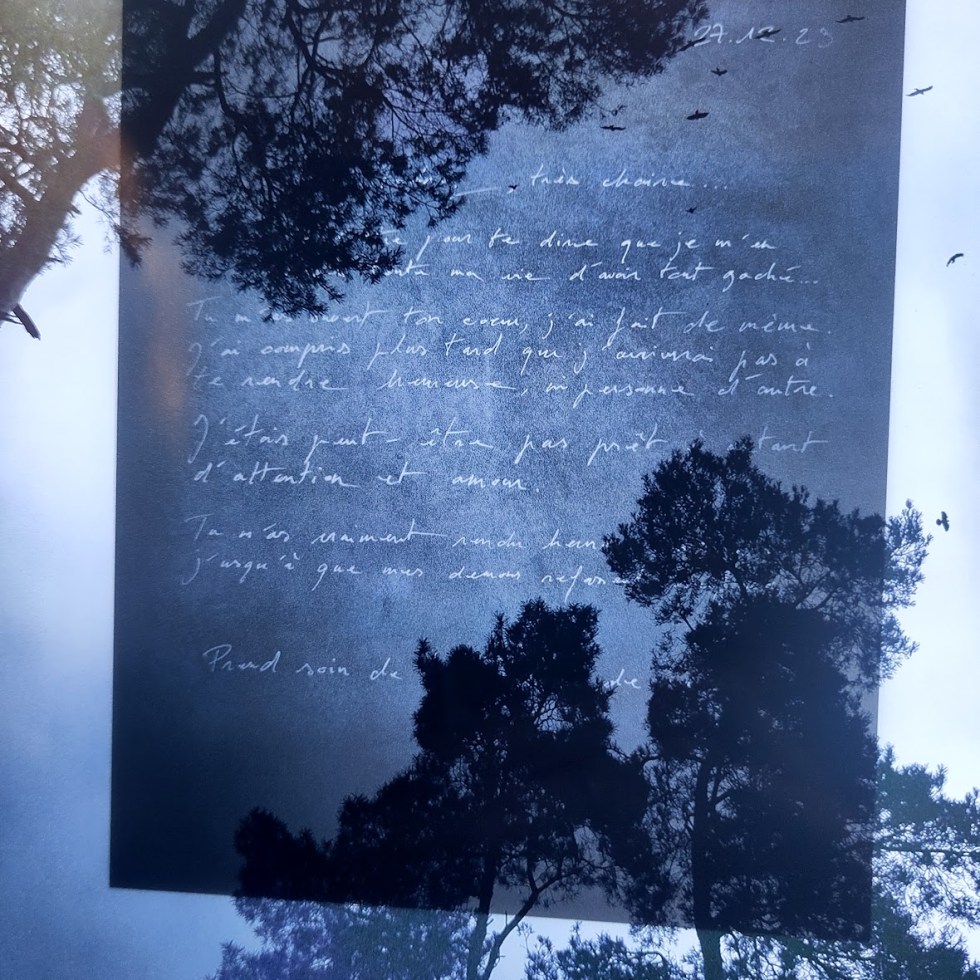 27.12.23
très chaire...
pour te dire que je m'en
ma vie d'avoir tout gaché...
Tu m'as ouvert ton coeur, j'ai fait de même.
J'ai compris plus tard que j'arriverai pas à
te rendre heureuse, ni personne d'autre.
J'étais peut-être pas prêt tant
d'attention et amour.
Tu m'as vraiment rendu
j'usqu'à que mes demons refass
Prend soin de de